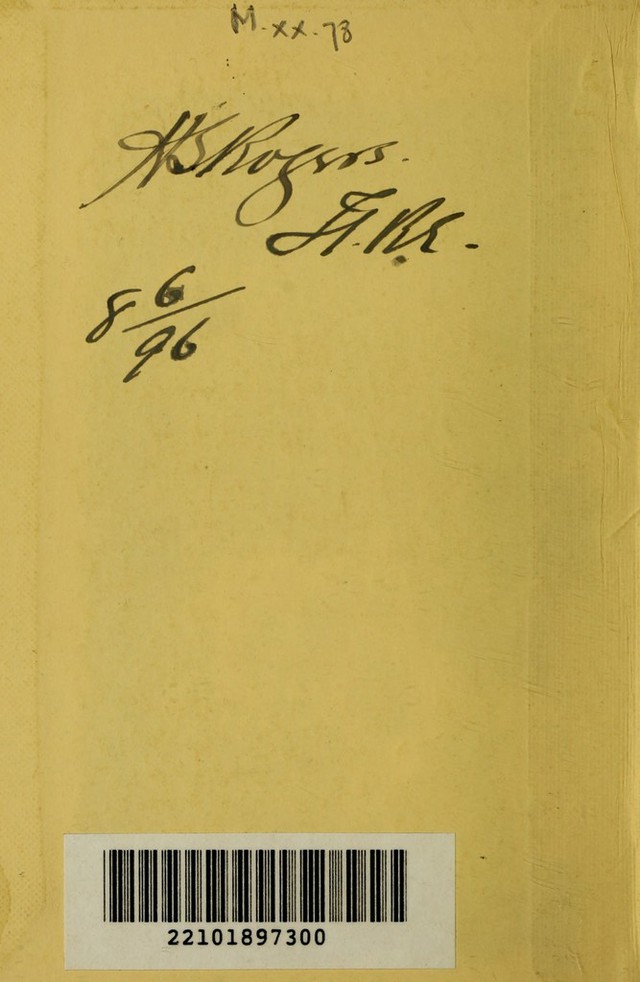 M.xx.78
HS Rogers.
Lt. R.E.
8 6/96
22101897300